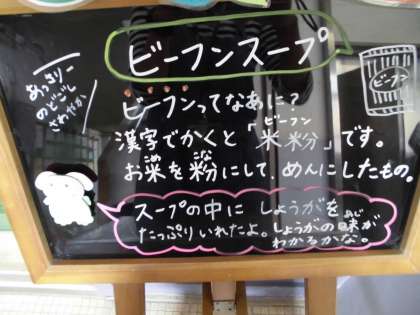 ビーフンスープ
あっさりー
のどごし
さわやか
ビーフン
ビーフンってなあに?
漢字でかくと「米粉」です。
ビーフン
お米を粉にして、めんにしたもの。
こめ こな
スープの中に しょうがを
たっぷりいれたよ。しょうがの味が
あじ
わかるかな。